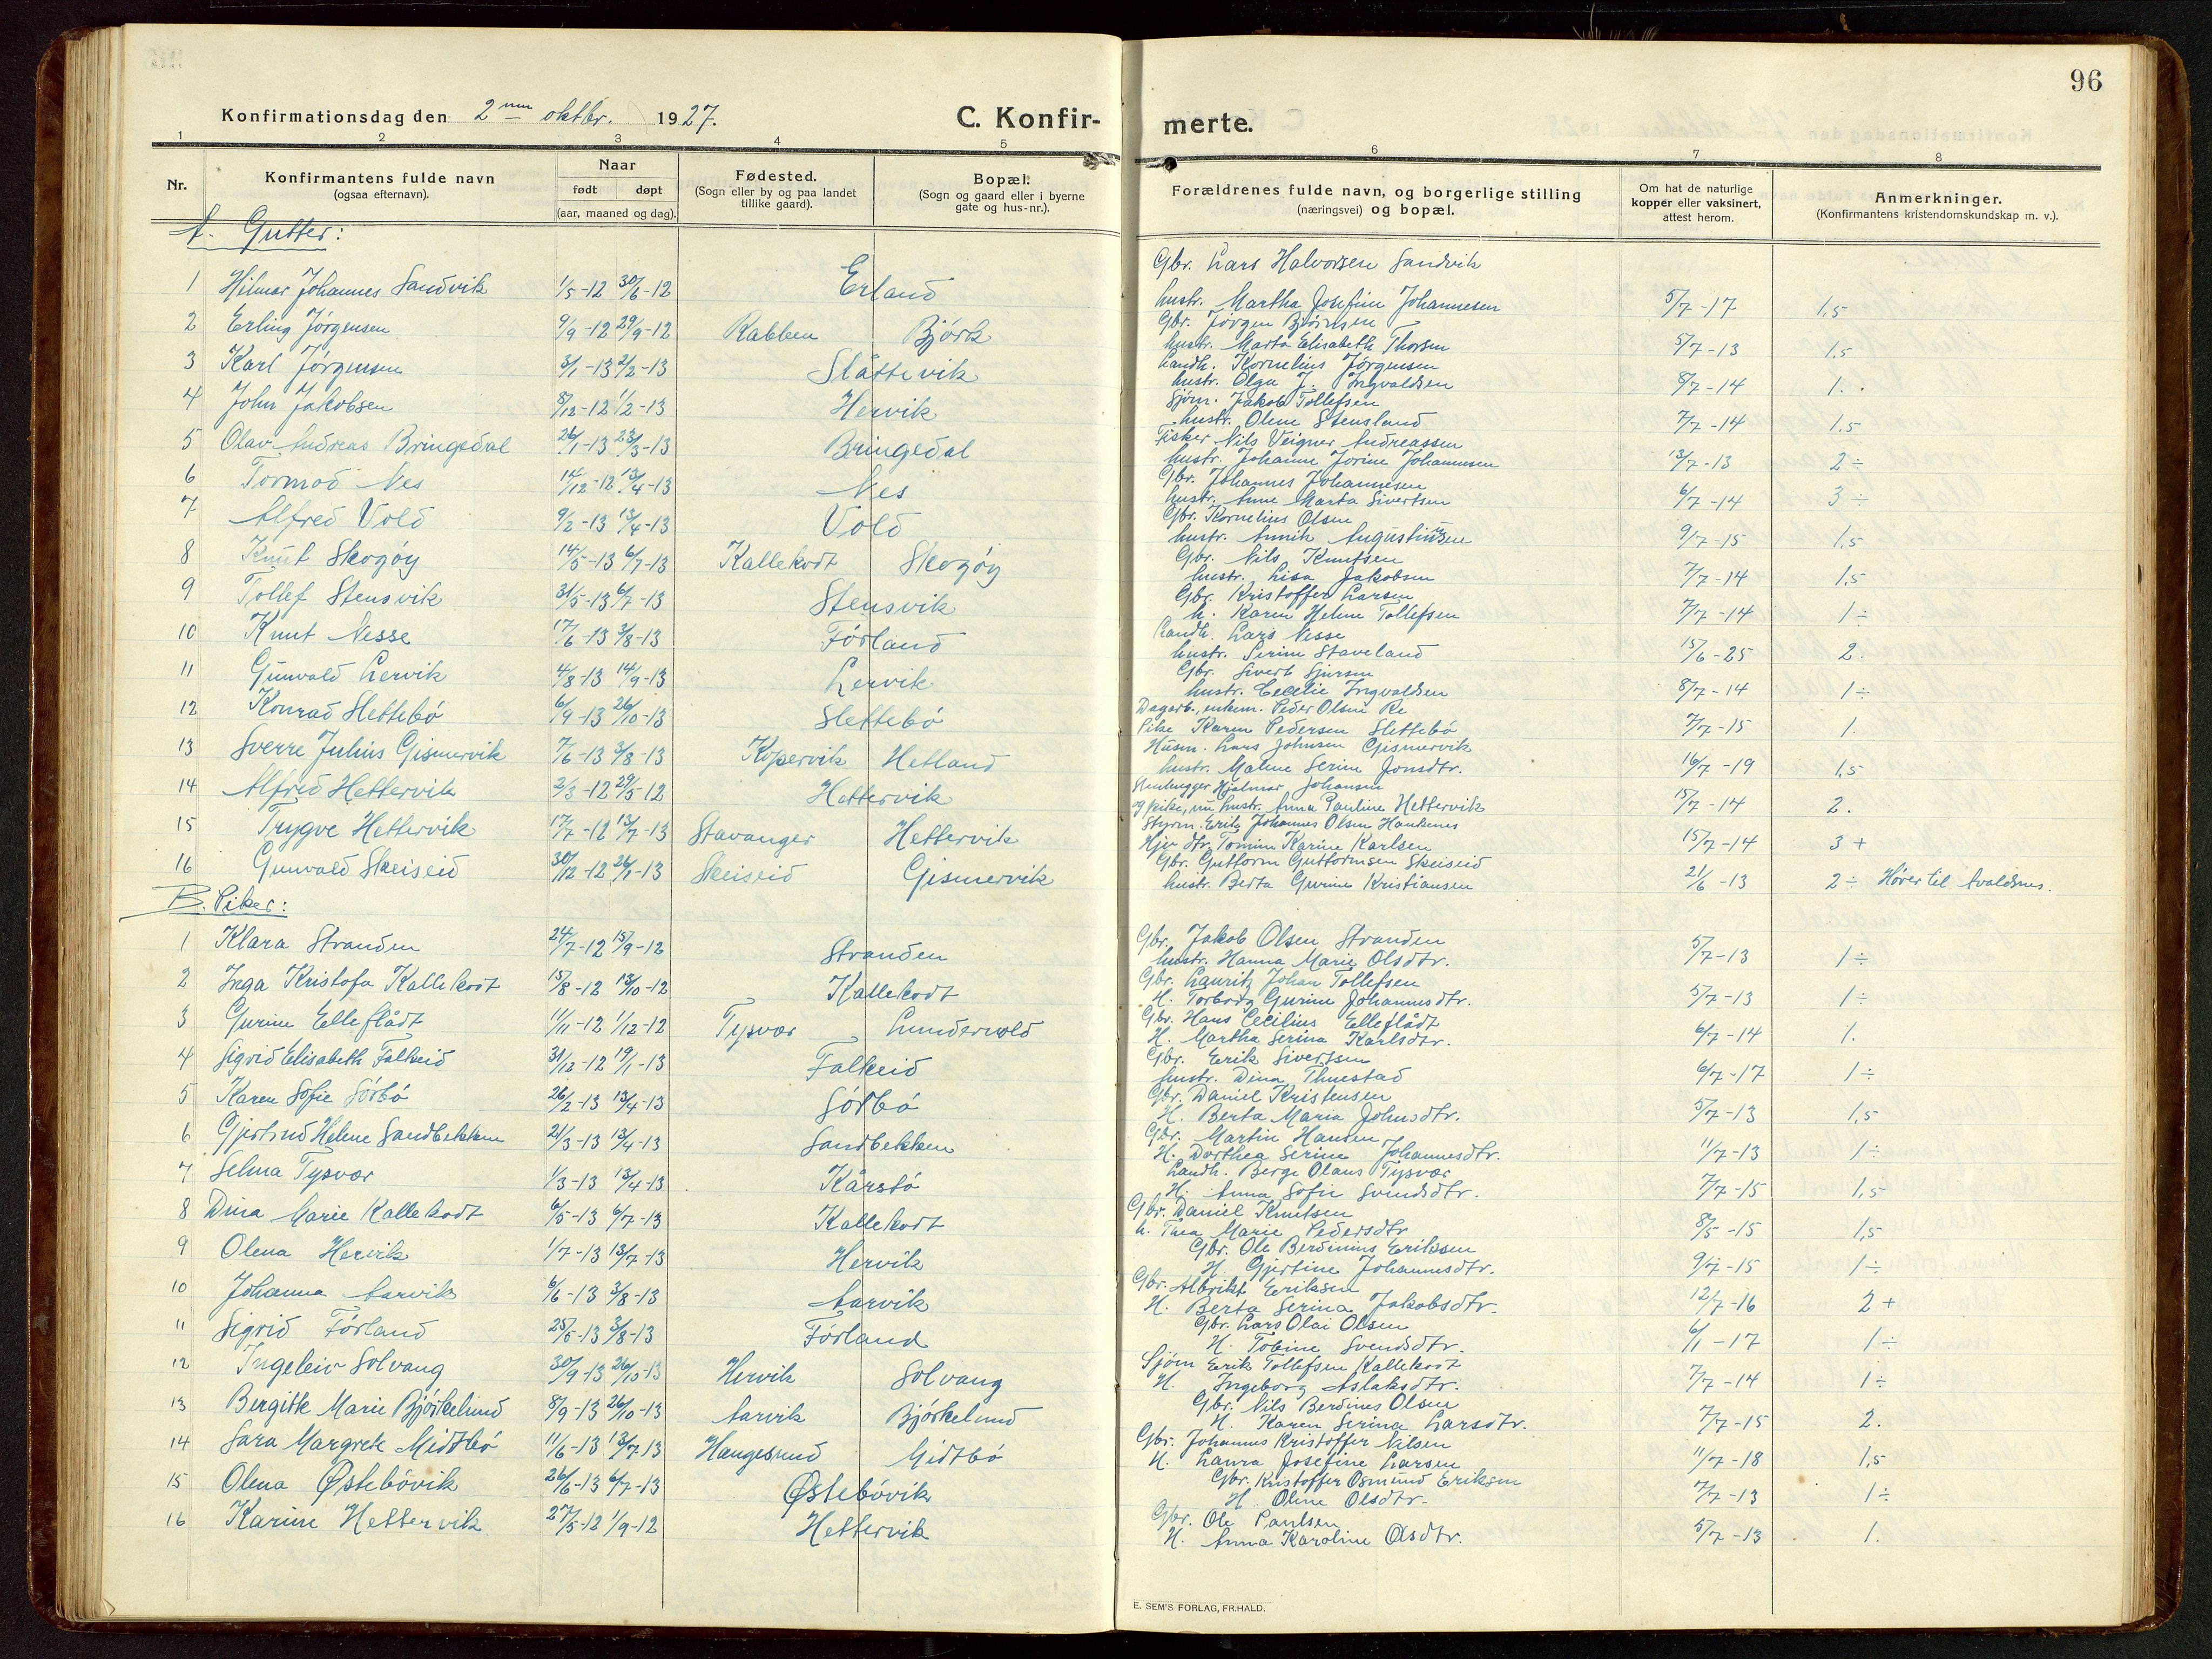 96
Konfirmationsdag den 2nnen oktbr. 1927. C. Konfir- merte.
1 2 3 4 5 6 7 8
Nr. Konfirmantens fulde navn (ogsaa efternavn). Naar født døpt (aar, maaned og dag). Fødested. (Sogn eller by og paa landet tillike gaard). Bopæl. (Sogn og gaard eller i byerne gate og hus-nr.). Forældrenes fulde navn, og borgerlige stilling (næringsvei) og bopæl. Om hat de naturlige kopper eller vaksinert, attest herom. Anmerkninger. (Konfirmantens kristendomskundskap m. v.).
A. Gutter:
Gbr. Lars Halvorsen Sandvik
1 Hilmar Johannes Sandvik 1/5-12 30/6-12 Erland hustr. Martha Josefine Johannesen 5/7-17 1,5
Gbr. Jørgen Bjørnsen
2 Erling Jørgensen 9/9-12 29/9-12 Kabben Bjórk hustr. Marta Elisabeth Thorsen 5/7-13 1,5
Landh. Kornelius Jørgensen
3 Karl Jørgensen 3/1-13 2/2-13 Slåttevik hustr. Olga J. Ingvaldsen 8/7-14 1.
Sjøm. Jakob Tollefsen
4 John Jakobsen 8/12-12 1/2-13 Hervik hustr. Oline Stensland 7/7-14 1.5
Fisker Nils Veigner Andreassen
5 Olav Andreas Bringedal 26/1-13 23/3-13 Bringedal hustr. Johanne Jorine Johannesen 13/7-13 2÷
Gbr. Johannes Johannesen
6 Tormod Nes 14/12-12 13/4-13 Nes hustr. Anne Marta Sivertsen 6/7-14 3÷
Gbr. Kornelius Olsen
7 Alfred Vold 9/2-13 13/4-13 Vold hustr. Annik Augustinsen 9/7-15 1,5
Gbr. Nils Knutsen
8 Knut Skogóy 14/5-13 6/7-13 Kallekodt Skogóy hustr. Lisa Jakobsen 7/7-14 1,5
Gbr. Kristoffer Larsen
9 Tollef Stensvik 31/5-13 6/7-13 Stensvik h. Karen Helene Tollefsen 7/7-14 1÷
Landh. Lars Nesse
10 Knut Nesse 17/6-13 3/8-13 Fórland hustr. Serine Staveland 15/6-25 2.
Gbr. Sivert Sjursen
11 Gunvald Lervik 4/8-13 14/9-13 Lervik hustr. Cecelie Ingvaldsen 8/7-14 1÷
Dagarb., enkem. Peder Olsen Re
12 Konrad Slettebó 6/9-13 26/10-13 Slettebó Pike Karen Pedersen Slettebó 7/7-15 1.
Husm. Lars Johnsen Gismervik
13 Sverre Julius Gismervik 7/6-13 3/8-13 Kopervik Hetland hustr. Malene Serine Jonsdtr. 16/7-19 1,5
Stenhugger Hjalmar Johansen
14 Alfred Hettervik 2/3-12 29/5-12 Hettervik og pike, nu hustr. Anna Pauline Hettervik 15/7-14 2.
Styrm. Erik Johannes Olsen Haukenes
15 Trygve Hettervik 17/7-12 13/7-13 Stavanger Hettervik Hjv dtr. Tomine Karine Karlsen 15/7-14 3+
Gbr. Guttorm Guttormsen Skeiseid
16 Gunvald Skeiseid 30/12-12 26/1-13 Skeiseid Gismervik hustr. Berta Gurine Kristiansen 21/6-13 2÷ Hører til Avaldsnes.
B. Piker:
Gbr. Jakob Olsen Stranden
1 Klara Stranden 24/7-12 15/9-12 Stranden hustr. Hanna Marie Olsdtr. 5/7-13 1÷
Gbr. Lauritz Johan Tollefsen
2 Inga Kristofa Kallekodt 15/8-12 13/10-12 Kallekodt H. Torborg Gurine Johannesdtr. 5/7-13 1÷
Gbr. Hans Cecilius Elleflådt
3 Gurine Elleflådt 11/11-12 1/12-12 Tysvær Lundervold H. Martha Serina Karlsdtr. 6/7-14 1.
Gbr. Erik Sivertsen
4 Sigrid Elisabeth Falkeid 31/12-12 19/1-13 Falkeid hustr. Dina Thuestad 6/7-17 1÷
Gbr. Daniel Kristensen
5 Karen Sofie Sórbó 26/2-13 13/4-13 Sórbó H. Berta Maria Johnsdtr. 5/7-13 1,5
Gbr. Martin Hansen
6 Gjertrud Helene Sandbekken 21/3-13 13/4-13 Sandbekken H. Dorthea Serine Johannesdtr. 11/7-13 1÷
Landh. Berge Olaus Tysvær
7 Selma Tysvær 1/3-13 13/4-13 Kårstó H. Anna Sofie Svendsdtr. 7/7-15 1,5
Gbr. Daniel Knutsen
8 Dina Marie Kallekodt 6/5-13 6/7-13 Kallekodt h. Thea Marie Pedersdtr 8/5-15 1,5
Gbr. Ole Berdinius Eriksen
9 Olena Hervik 1/7-13 13/7-13 Hervik H. Gjertine Johannesdtr. 9/7-15 1÷
Gbr. Albrikt Eriksen
10 Johanna Aarvik 6/6-13 3/8-13 Aarvik H. Berta Serina Jakobsdtr. 12/7-16 2+
Gbr. Lars Olai Olsen
11 Sigrid Fórland 25/5-13 3/8-13 Fórland H. Tobine Svendsdtr. 6/1-17 1÷
Sjøm Erik Tollefsen Kallekodt
12 Ingeleiv Solvang 30/9-13 26/10-13 Hervik Solvang H. Ingeborg Aslaksdtr. 7/7-14 1÷
Gbr. Nils Berdines Olsen
13 Bergitte Marie Bjórkelund 8/9-13 26/10-13 Aarvik Bjórkelund H. Karen Serina Larsdtr. 7/7-15 2.
Gbr. Johannes Kristoffer Nilsen
14 Sara Margrete Midtbó 11/6-13 13/7-13 Haugesund Midtbó H. Laura Josefine Larsen 11/7-18 1,5
Gbr. Kristoffer Osmund Eriksen
15 Olena Østebóvik 26/6-13 6/7-13 Østebóvik H. Oline Olsdtr. 7/7-13 1÷
Gbr. Ole Paulsen
16 Karine Hettervik 27/5-12 1/9-12 Hettervik H. Anna Karoline Olsdtr. 5/7-13 1.
E. SEM'S FORLAG, FR.HALD.